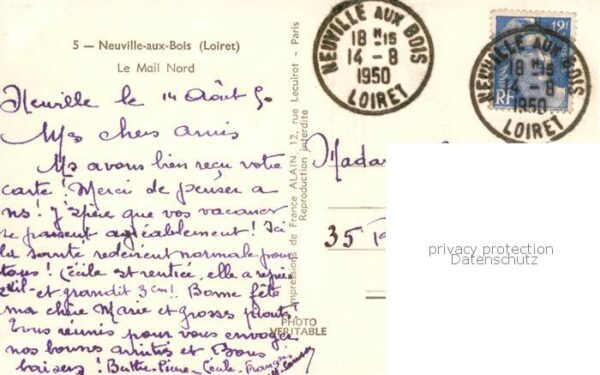 5 — Neuville-aux-Bois (Loiret)
Le Mail Nord
Neuville le 14 Août 50
Mes chers amis
Ns avons bien reçu votre
carte ! Merci de penser a
ns ! J'espère que vos vacances
se passent agréablement ! Ici
la santé redevient normale pour
tous ! Cécile est rentrée, elle a
et grandit 3 cm ! Bonne fête
ma chère Marie et grosses
Tous réunis pour vous envoyer
nos bonnes amitiés et Bons
baisers ! Berthe-Pierre-Cécile-François
Impressions de France ALAIN, 12, rue Lecuirot - Paris
Reproduction interdite
PHOTO
VERITABLE
NEUVILLE AUX BOIS
18 H 15
14 - 8
1950
LOIRET
12F
RF
NEUVILLE AUX BOIS
18 H 15
14 - 8
1950
LOIRET
Madam
35
privacy protection
Datenschutz